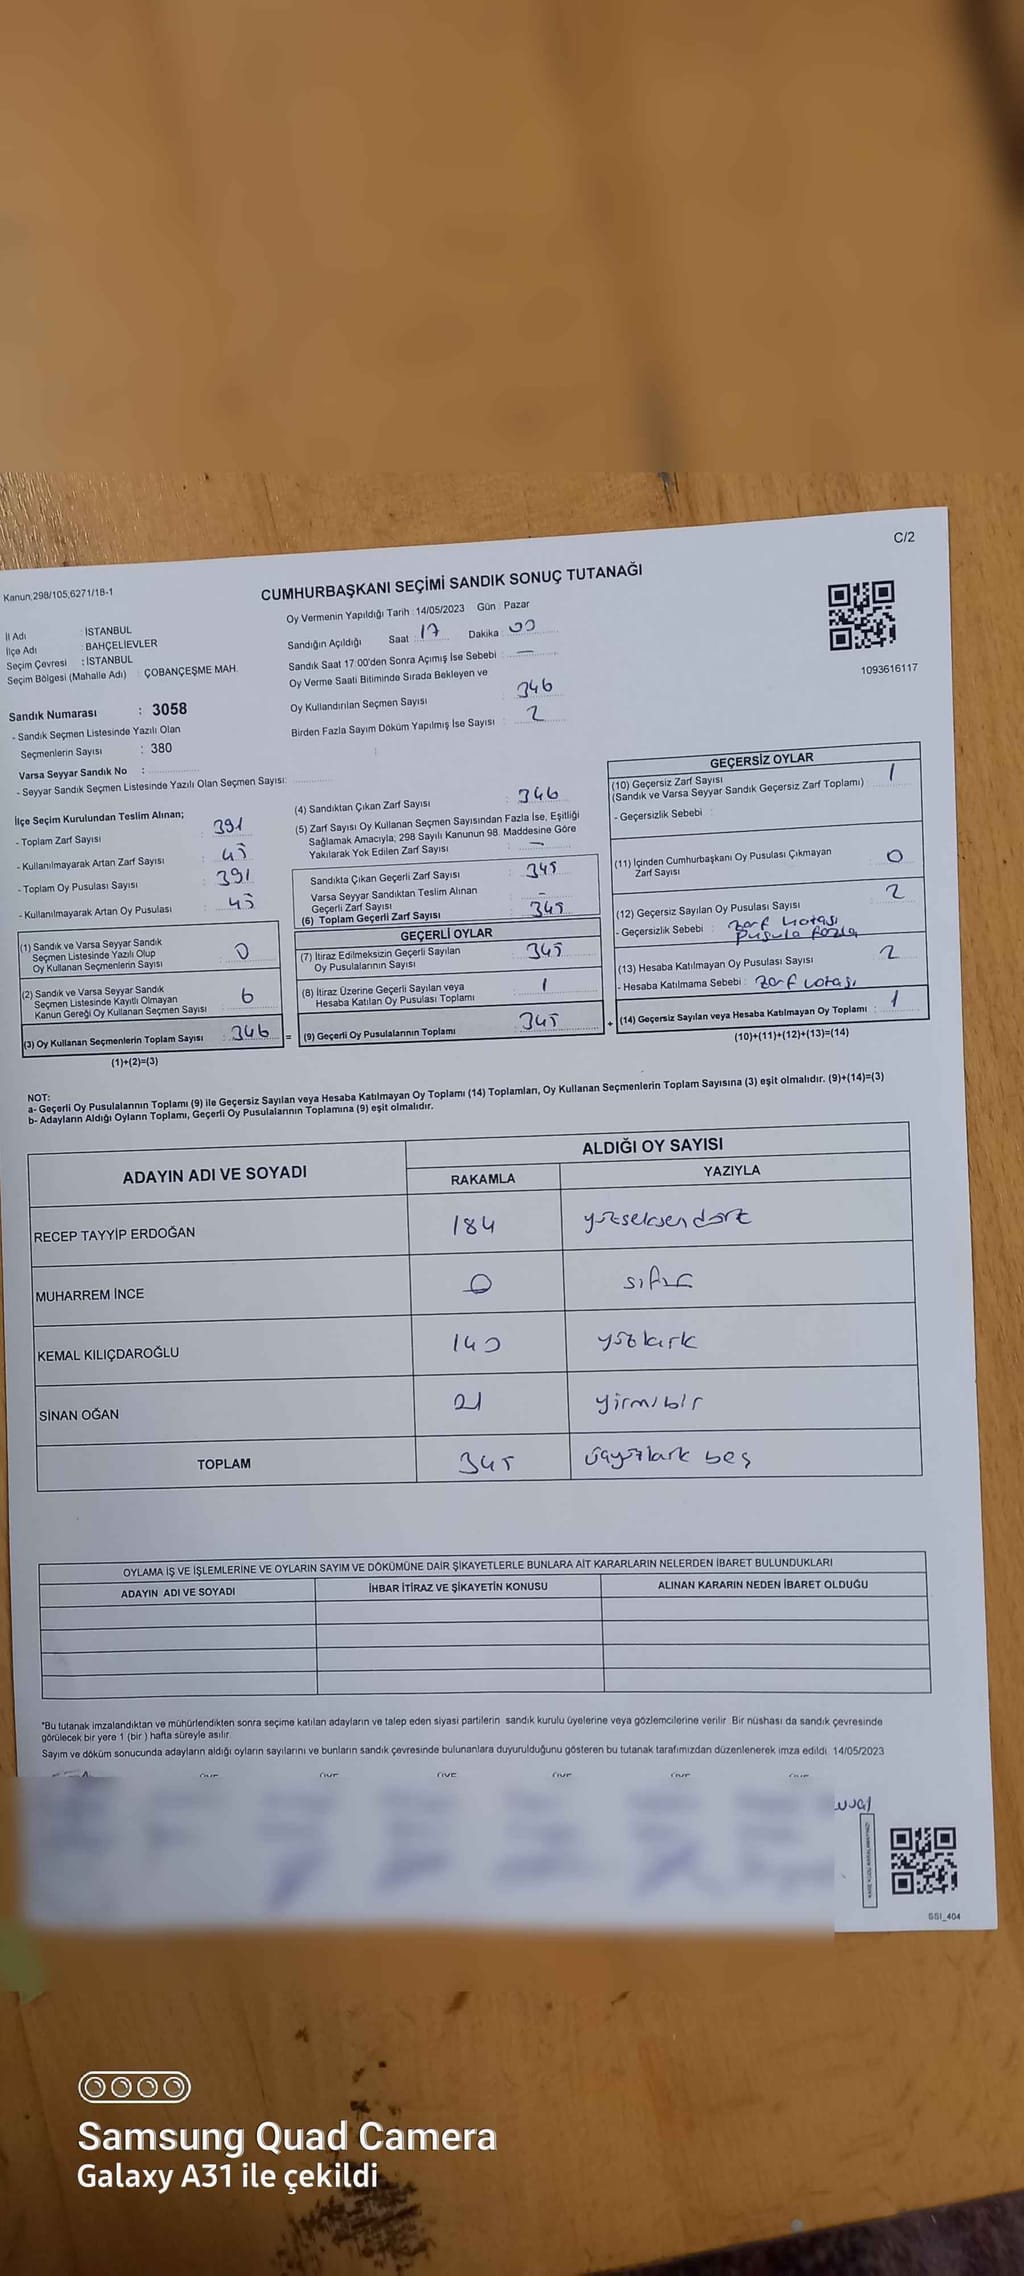 C/2
Kanun,298/105,6271/18-1
CUMHURBAŞKANI SEÇİMİ SANDIK SONUÇ TUTANAĞI
İl Adı : İSTANBUL
İlçe Adı : BAHÇELİEVLER
Seçim Çevresi : İSTANBUL
Seçim Bölgesi (Mahalle Adı) : ÇOBANÇEŞME MAH.
Sandık Numarası : 3058
- Sandık Seçmen Listesinde Yazılı Olan
Seçmenlerin Sayısı : 380
Varsa Seyyar Sandık No :
- Seyyar Sandık Seçmen Listesinde Yazılı Olan Seçmen Sayısı:
Oy Vermenin Yapıldığı Tarih : 14/05/2023 Gün : Pazar
Sandığın Açıldığı Saat : 17 Dakika : 00
Sandık Saat 17:00'den Sonra Açımış İse Sebebi : —
Oy Verme Saati Bitiminde Sırada Bekleyen ve
Oy Kullandırılan Seçmen Sayısı : 346
Birden Fazla Sayım Döküm Yapılmış İse Sayısı : 2
1093616117
İlçe Seçim Kurulundan Teslim Alınan;
- Toplam Zarf Sayısı : 391
- Kullanılmayarak Artan Zarf Sayısı : 45
- Toplam Oy Pusulası Sayısı : 391
- Kullanılmayarak Artan Oy Pusulası : 45
(1) Sandık ve Varsa Seyyar Sandık
Seçmen Listesinde Yazılı Olup
Oy Kullanan Seçmenlerin Sayısı : 0
(2) Sandık ve Varsa Seyyar Sandık
Seçmen Listesinde Kayıtlı Olmayan
Kanun Gereği Oy Kullanan Seçmen Sayısı : 6
(3) Oy Kullanan Seçmenlerin Toplam Sayısı : 346 =
(1)+(2)=(3)
(4) Sandıktan Çıkan Zarf Sayısı : 346
(5) Zarf Sayısı Oy Kullanan Seçmen Sayısından Fazla İse, Eşitliği
Sağlamak Amacıyla; 298 Sayılı Kanunun 98. Maddesine Göre
Yakılarak Yok Edilen Zarf Sayısı : —
Sandıkta Çıkan Geçerli Zarf Sayısı : 345
Varsa Seyyar Sandıktan Teslim Alınan
Geçerli Zarf Sayısı : —
(6) Toplam Geçerli Zarf Sayısı : 345
GEÇERLİ OYLAR
(7) İtiraz Edilmeksizin Geçerli Sayılan
Oy Pusulalarının Sayısı : 345
(8) İtiraz Üzerine Geçerli Sayılan veya
Hesaba Katılan Oy Pusulası Toplamı : 1
(9) Geçerli Oy Pusulalarının Toplamı : 345 +
GEÇERSİZ OYLAR
(10) Geçersiz Zarf Sayısı
(Sandık ve Varsa Seyyar Sandık Geçersiz Zarf Toplamı) : 1
- Geçersizlik Sebebi :
(11) İçinden Cumhurbaşkanı Oy Pusulası Çıkmayan
Zarf Sayısı : 0
(12) Geçersiz Sayılan Oy Pusulası Sayısı : 2
- Geçersizlik Sebebi : zarf hatası
pusula fazla
(13) Hesaba Katılmayan Oy Pusulası Sayısı : 2
- Hesaba Katılmama Sebebi : zarf hatası
(14) Geçersiz Sayılan veya Hesaba Katılmayan Oy Toplamı : 1
(10)+(11)+(12)+(13)=(14)
NOT:
a- Geçerli Oy Pusulalarının Toplamı (9) ile Geçersiz Sayılan veya Hesaba Katılmayan Oy Toplamı (14) Toplamları, Oy Kullanan Seçmenlerin Toplam Sayısına (3) eşit olmalıdır. (9)+(14)=(3)
b- Adayların Aldığı Oyların Toplamı, Geçerli Oy Pusulalarının Toplamına (9) eşit olmalıdır.
ADAYIN ADI VE SOYADI
ALDIĞI OY SAYISI
RAKAMLA YAZIYLA
RECEP TAYYİP ERDOĞAN 184 yüzseksendört
MUHARREM İNCE 0 sıfır
KEMAL KILIÇDAROĞLU 140 yüzkırk
SİNAN OĞAN 21 yirmibir
TOPLAM 345 üçyüzkırk beş
OYLAMA İŞ VE İŞLEMLERİNE VE OYLARIN SAYIM VE DÖKÜMÜNE DAİR ŞİKAYETLERLE BUNLARA AİT KARARLARIN NELERDEN İBARET BULUNDUKLARI
ADAYIN ADI VE SOYADI İHBAR İTİRAZ VE ŞİKAYETİN KONUSU ALINAN KARARIN NEDEN İBARET OLDUĞU
"Bu tutanak imzalandıktan ve mühürlendikten sonra seçime katılan adayların ve talep eden siyasi partilerin sandık kurulu üyelerine veya gözlemcilerine verilir. Bir nüshası da sandık çevresinde
görülecek bir yere 1 (bir ) hafta süreyle asılır.
Sayım ve döküm sonucunda adayların aldığı oyların sayılarını ve bunların sandık çevresinde bulunanlara duyurulduğunu gösteren bu tutanak tarafımızdan düzenlenerek imza edildi. 14/05/2023
SSI_404
Samsung Quad Camera
Galaxy A31 ile çekildi